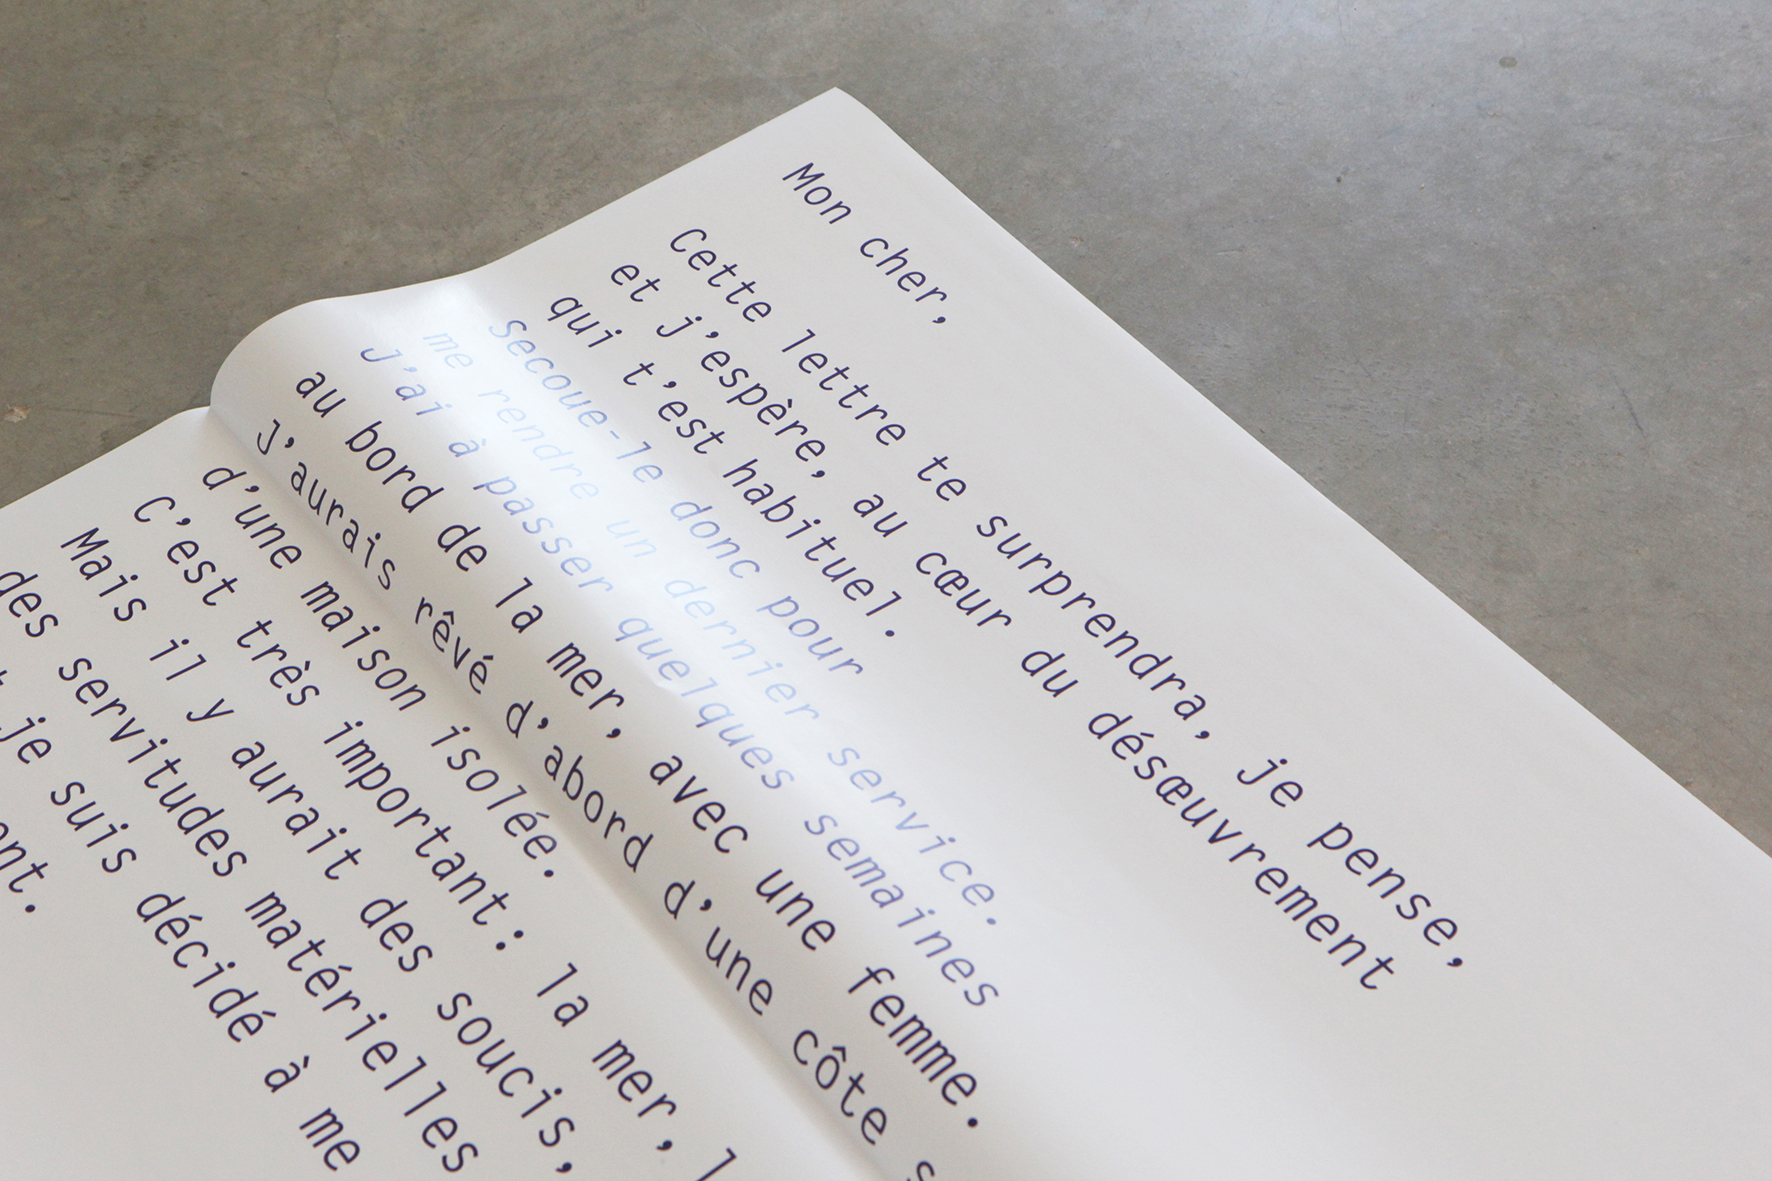 Mon cher,
Cette lettre te surprendra, je pense,
et j’espère, au cœur du désœuvrement
qui t’est habituel.
Secoue-le donc pour
me rendre un dernier service.
J’ai à passer quelques semaines
au bord de la mer, avec une femme.
J’aurais rêvé d’abord d’une côte
d’une maison isolée.
C’est très important: la mer,
Mais il y aurait des soucis,
des servitudes matérielles
je suis décidé à me